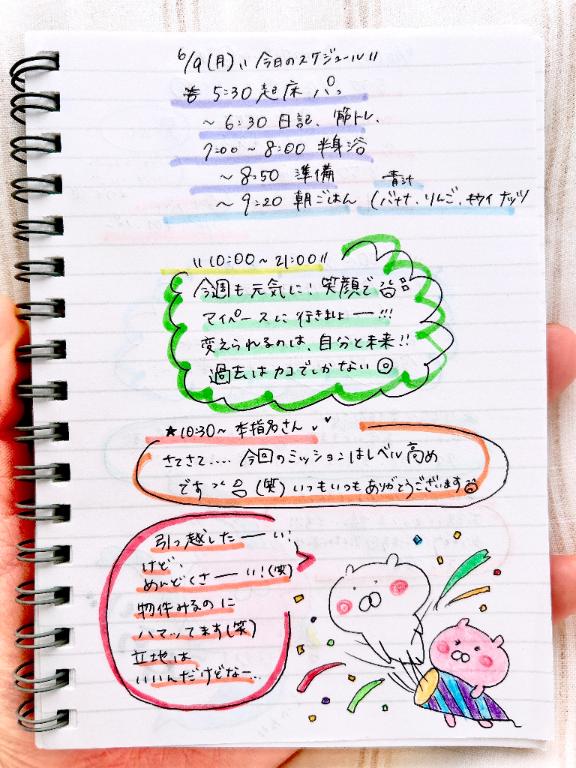 6/9(月)、、今日のスケジュール!!
5:30 起床 パッ
~6:30 日記、筋トレ、
7:00~8:00 半身浴
~8:50 準備
青汁
~9:20 朝ごはん (バナナ、りんご、キウイ ナッツ
\\10:00~21:00//
今週も元気に!笑顔で
マイペースに行きましょー!!!
変えられるのは、自分と未来!!
過去はカコでしかない
★10:30~ 本指名さん
さてさて.... 今回のミッションはレベル高め
です (笑) いつもいつもありがとうございます
引っ越したーい!
けど、
めんどくさーい!(笑)
物件みるのに
ハマッてます(笑)
立地は
いいんだけどなー...